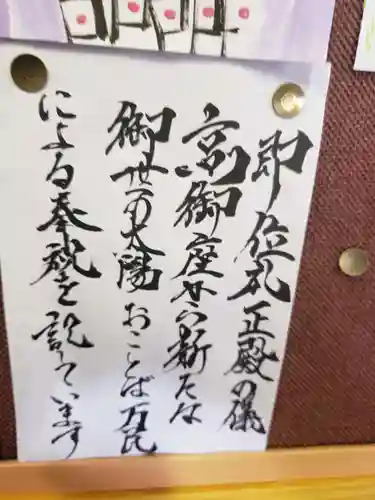 即位礼正殿の儀
高御座から新たな
御世の太陽おことば万民
による奉祝を説ています